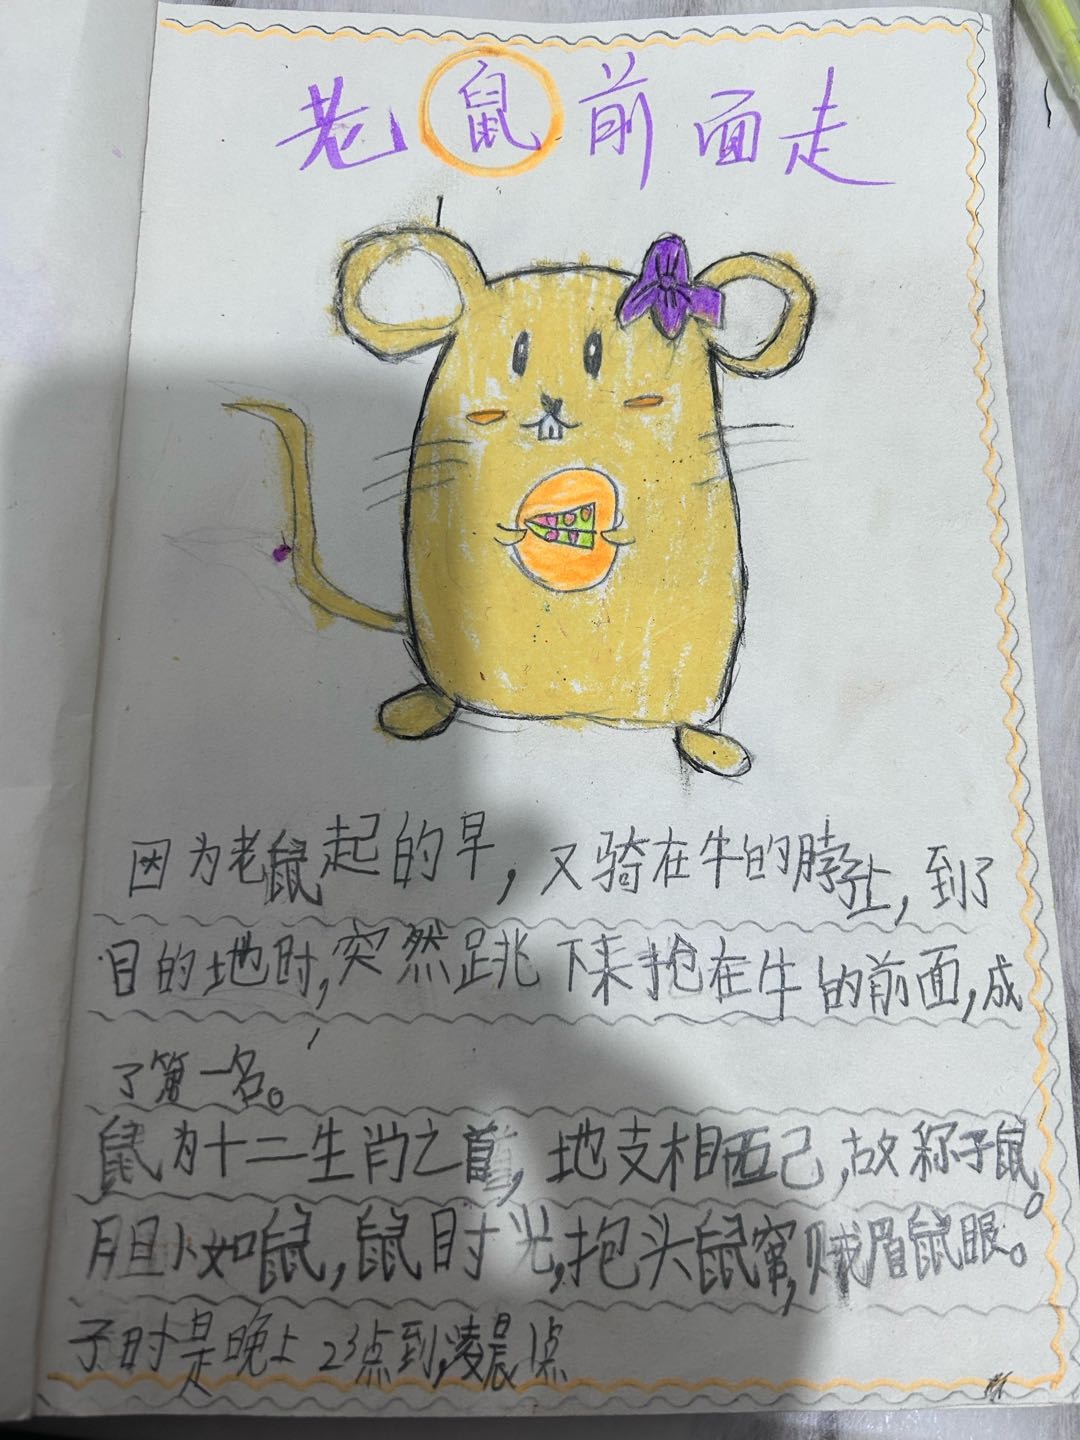 老鼠前面走
因为老鼠起的早，又骑在牛的脖子上，到了
目的地时，突然跳下来抢在牛的前面，成
了第一名。
鼠为十二生肖之首，地支相配己，故称子鼠。
胆小如鼠，鼠目寸光，抱头鼠窜，贼眉鼠眼。
子时是晚上23点到凌晨1点